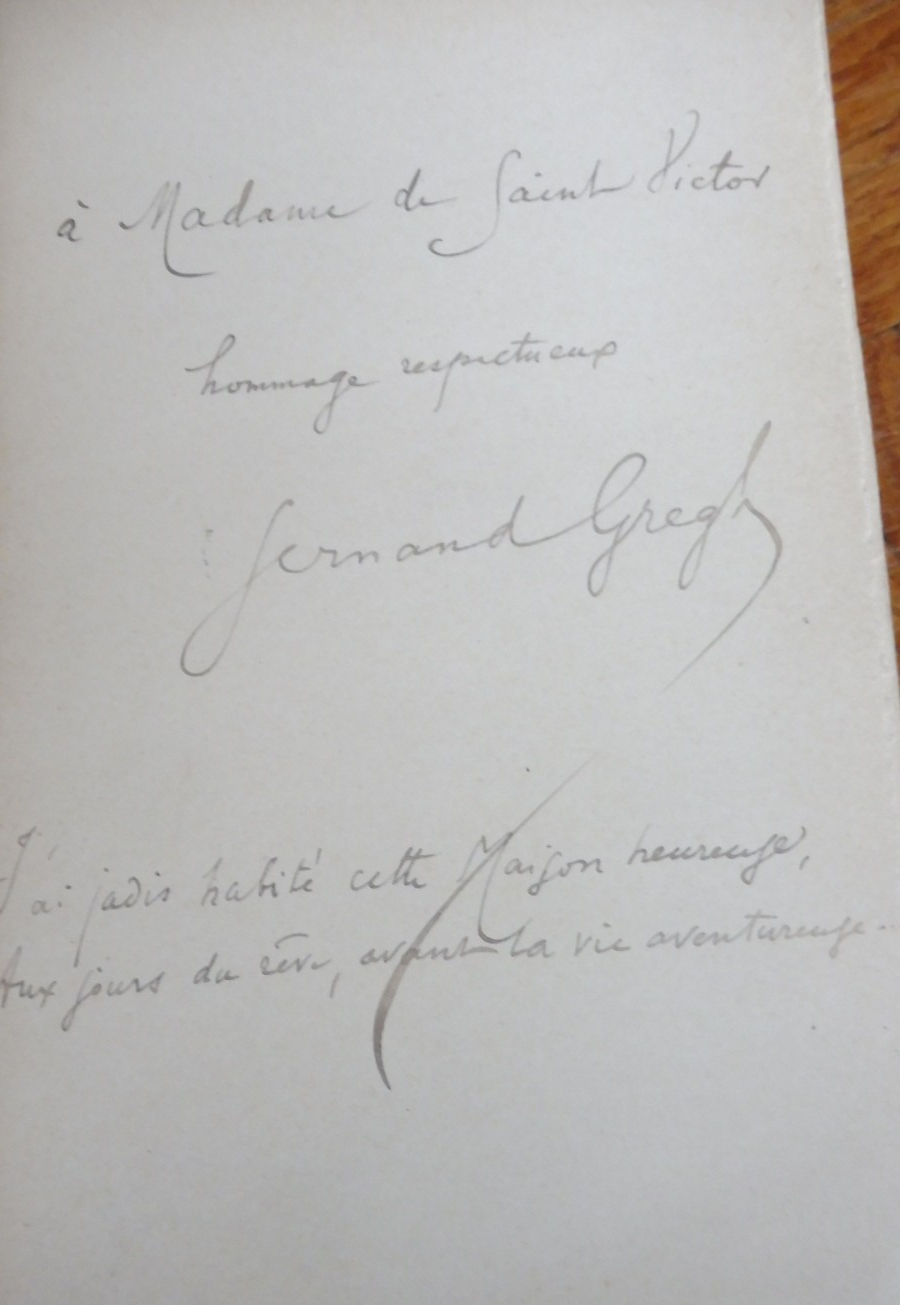 à Madame de Saint Victor
hommage respectueux
Fernand Gregh
J'ai jadis habité cette Maison heureuse,
Aux jours du rêve, avant la vie aventureuse..